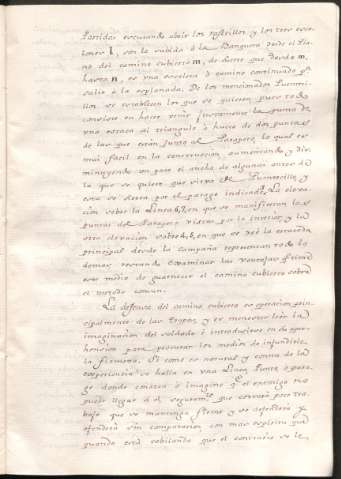 Partidas escusando abrir los rastrillos y los tres esca-
lones l, son la subida à la Banqueta desde el Pla-
no del camino cubierto m, de suerte que desde m,
hasta n, es una escalera ò camino continuado p.ª
salir à la explanada. De los mencionados Tuercani-
llos se establecen los que se quieren pues todo
consiste en hacer venir justamente la punta de
una estaca al triangulo ò hueco de dos puntas
de las que están junto al Parapeto, lo qual es
mui facil en la construccion aumentando y dis-
minuyendo un poco el ancho de algunas antes de
la que se quiere que sirva de y
esta se dexa por el parage indicado. La eleva-
cion sobre la Linea 6,7, en que se manifiestan las
puntas del Parapeto vistas por lo interior y la
otra elevacion sobre 4,8, en que se vé la entrada
principal desde la campaña representan todo lo
demas, restando examinar las ventajas
este modo de guarnecer el camino cubierto sobre
el metodo comun.
La defensa del camino cubierto es operacion prin-
cipalmente de las tropas, y es menester leer la
imaginacion del soldado è introducirse en su apre-
hension para procurar los medios de infundirle
la firmeza. El como es natural y consta de la
experiencia se halla en una Linea, Puente ò para-
ge donde conozca ò imagine q.e el enemigo no
puede llegar à el seguram.te que cortará poco tra-
bajo que se mantenga firme y se defenderá y
ofenderá sin comparacion con mas espiritu que
quando está vacilando que el contrario se le